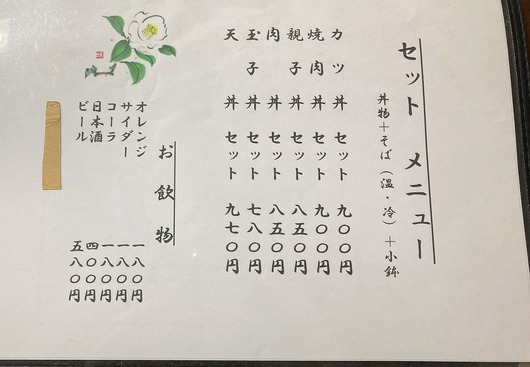 セット メニュー
丼物＋そば（温・冷）＋小鉢
カツ丼 セット 九〇〇円
焼肉丼 セット 九〇〇円
親子丼 セット 八五〇円
肉丼 セット 八五〇円
玉子丼 セット 七八〇円
天丼 セット 九七〇円
お飲物
オレンジ 一八〇円
サイダー 一八〇円
コーラ 一八〇円
日本酒 四〇〇円
ビール 五八〇円